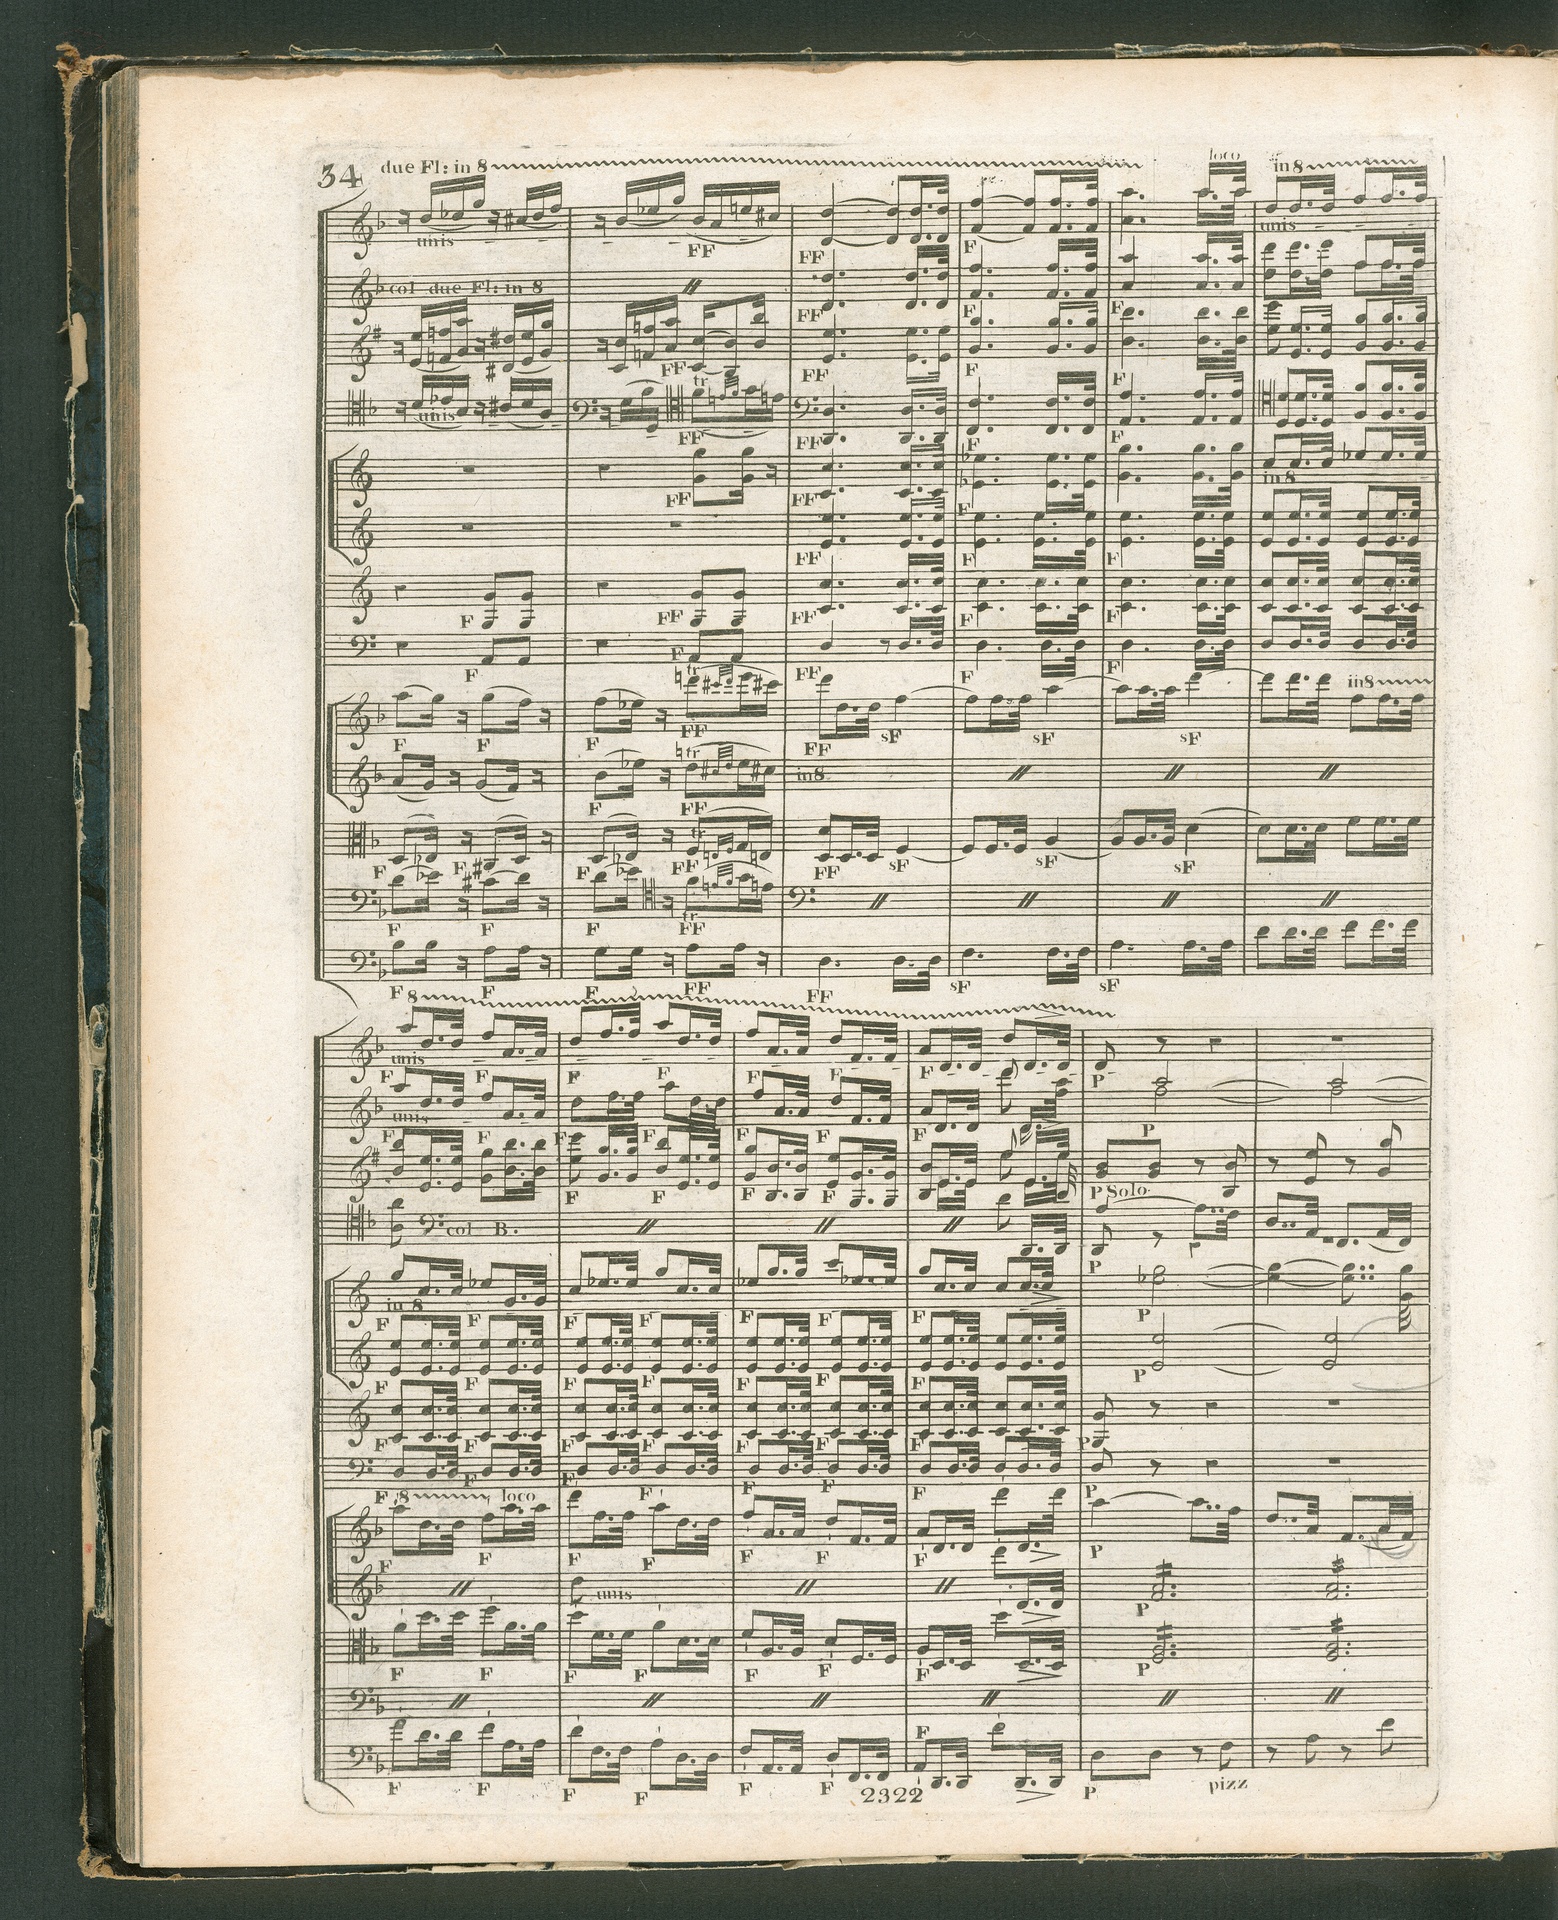 34 due Fl: in 8 loco in 8
unis FF FF F unis
col due Fl: in 8 FF F F
FF FF F F
unis tr FF FF F F
FF FF F in 8
FF F F
F FF FF F F
F F FF F F
F F F tr FF FF sF sF sF in8
F tr FF in8
F F F tr FF FF sF sF sF
F F F tr FF
F F F FF FF sF sF
8
unis F F F F F F F P
unis F F F F F F F P
F F F F P Solo
col B. P
in 8 F F F F F F F P
F F F F F F F P
F F F F F F F P
F F F F F F P
F 8 loco F F F F F F P
unis P
F F F F F F F P
F F F F F F F P pizz
2322